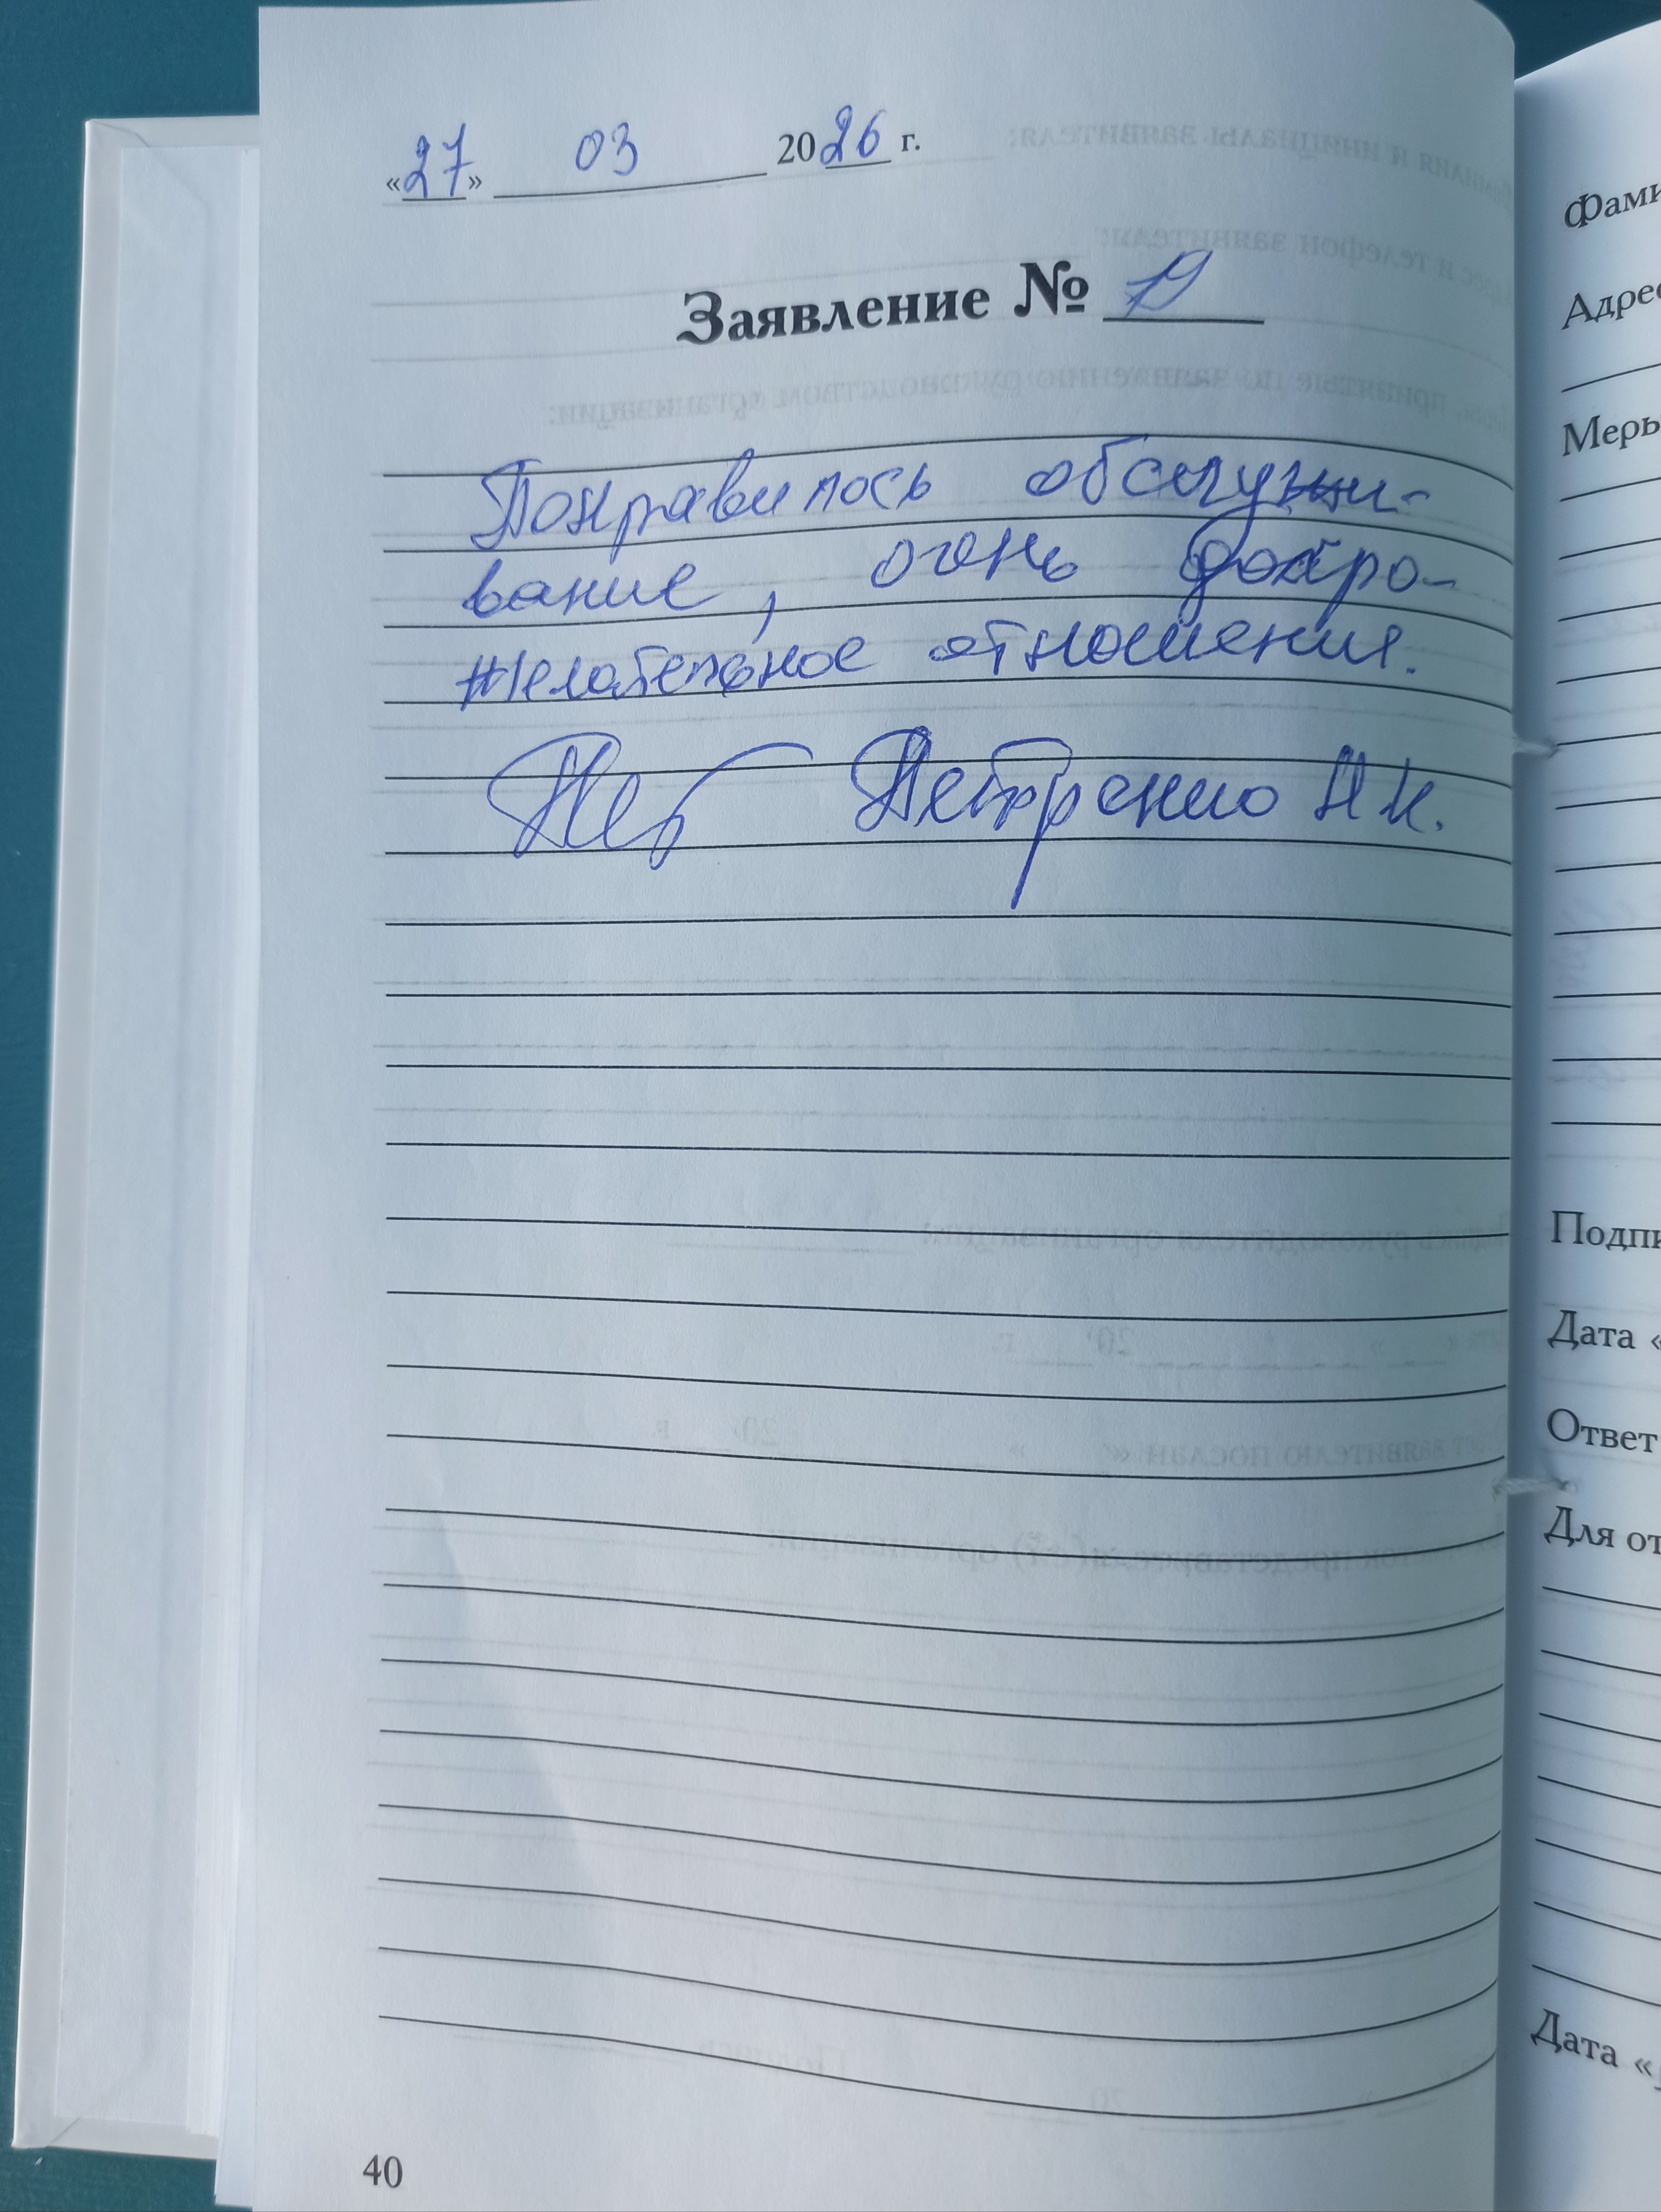 «27» 03 2026 г.
Заявление № 19
Понравилось обслужи-
вание, очень добро-
желательное отношения.
Петренко Н И.
40
Фами
Адрес
Меры
Подпи
Дата «
Ответ
Для от
Дата «